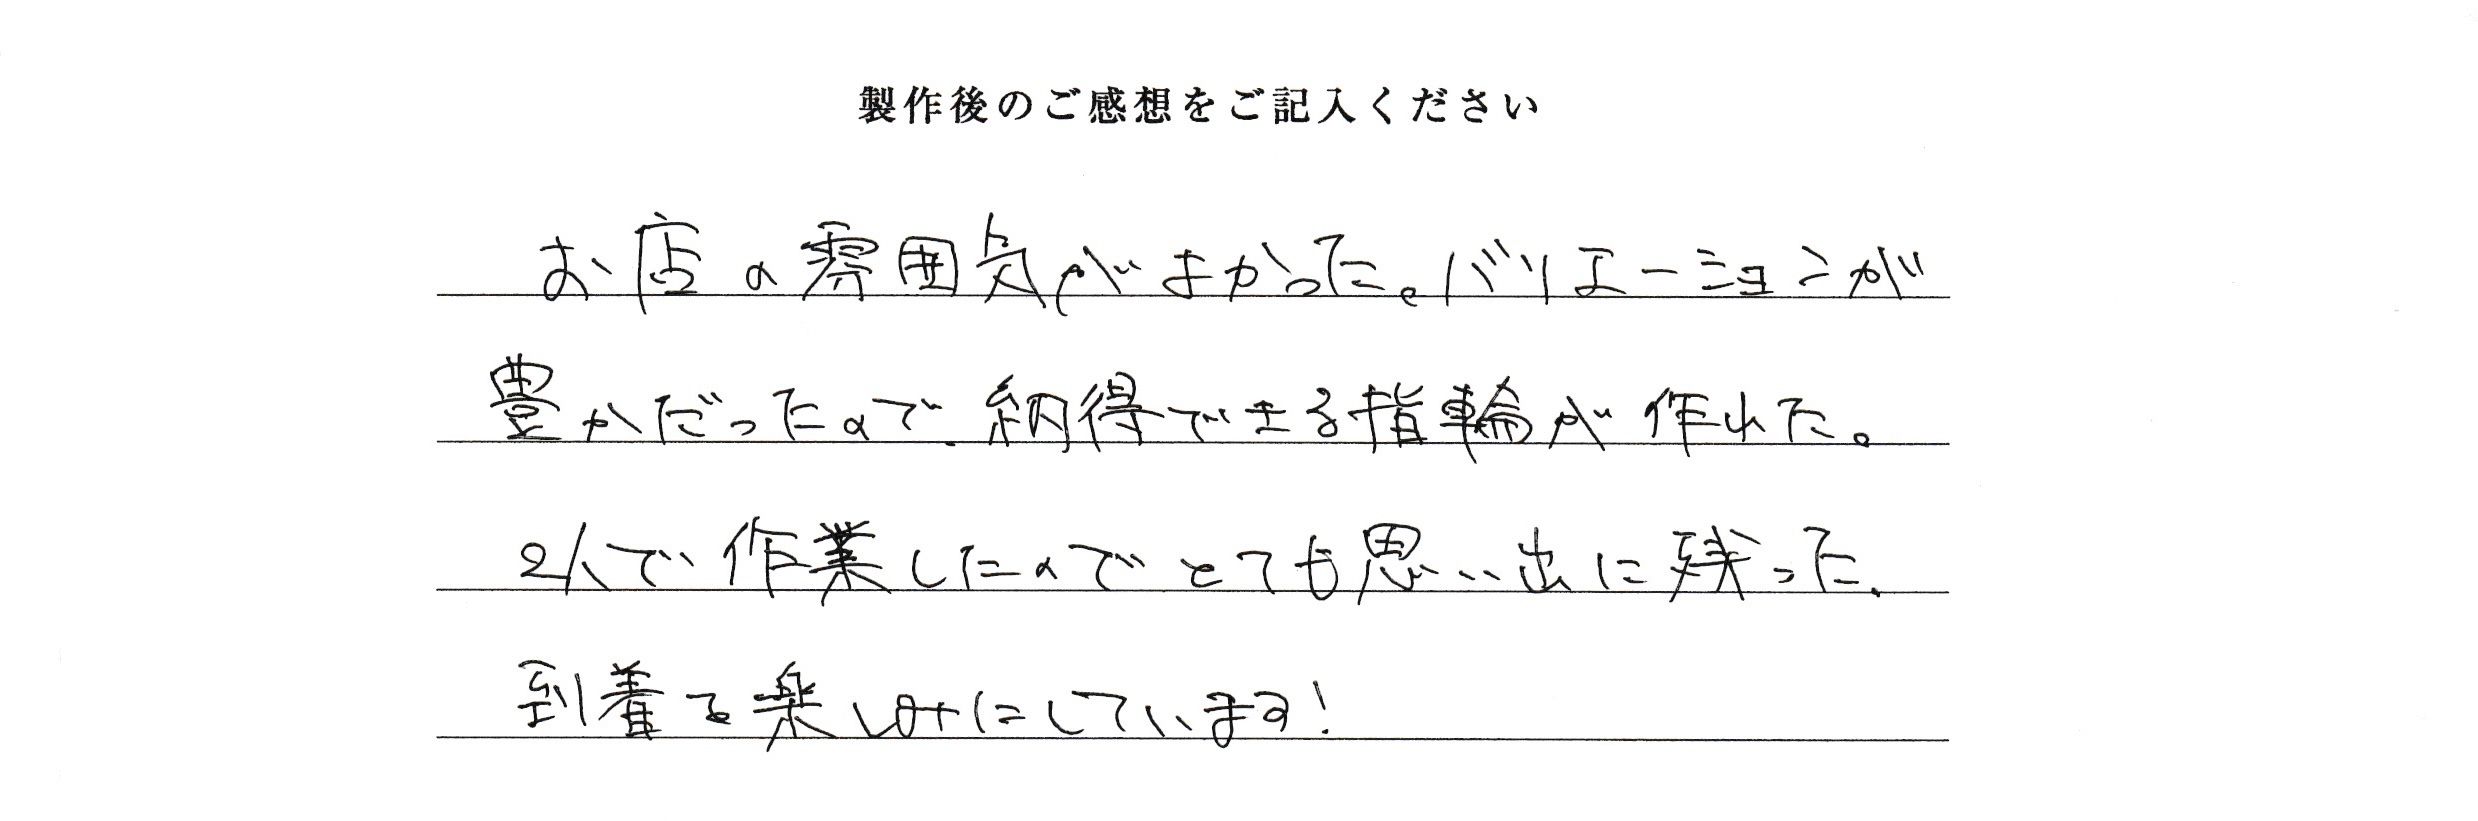 製作後のご感想をご記入ください
お店の雰囲気がよかった。バリエーションが
豊かだったので、納得できる指輪が作れた。
2人で作業したのでとても思い出に残った。
到着を楽しみにしています!